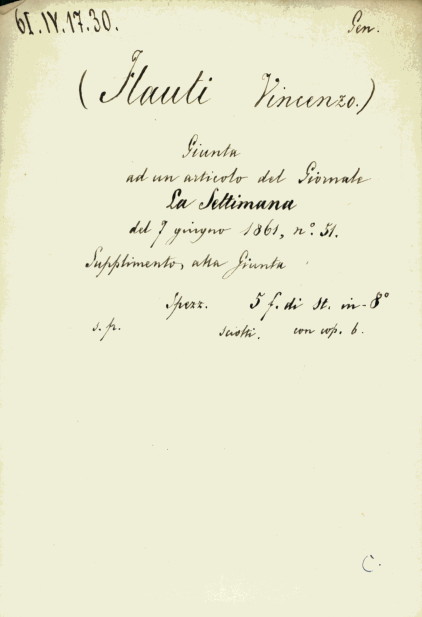 61.IV.17.30.
Gen.
(Flauti Vincenzo.)
Giunta
ad un articolo del Giornale
La Settimana
del 7 giugno 1861, n.° 51.
Supplimento, alla Giunta
5 f. di st. in-8°
s. p. sciolti. con cop. b.
C.